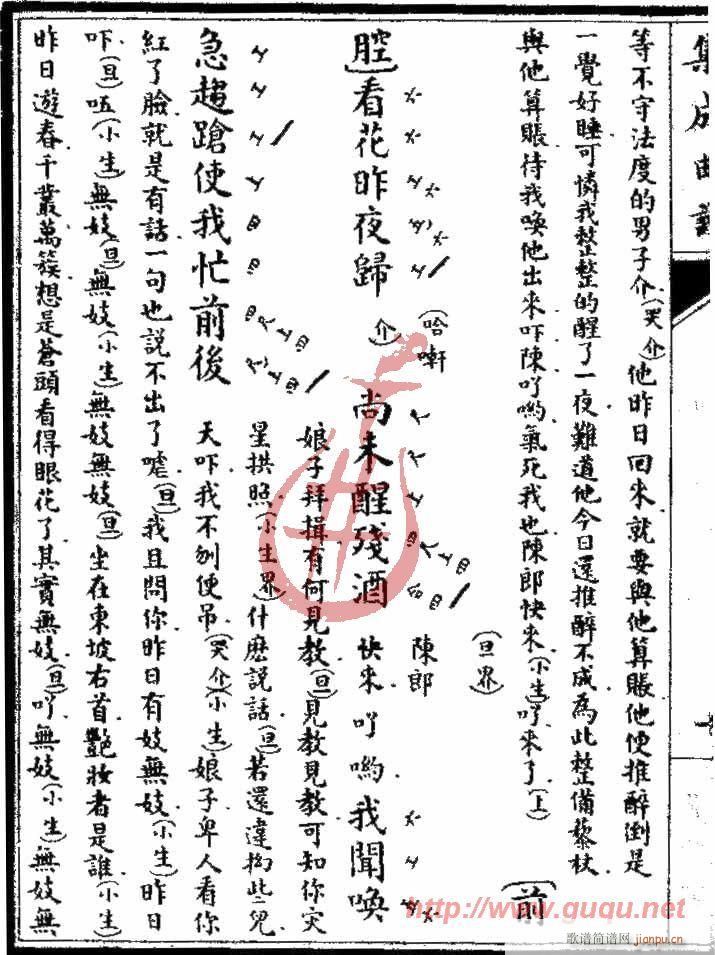 集成曲譜
等不守法度的男子介(哭介)他昨日回來就要與他算賬他便推醉倒是
一覺好睡可憐我整整的醒了一夜難道他今日還推醉不成為此整備藜杖
與他算賬待我喚他出來吓陳吖喲氣死我也陳郎快來(小生)吖來了(上)
(旦界)
[前
腔]看花昨夜歸(介)(哈哳)尚未醒殘酒 陳郎快來吖喲我聞喚
急趨蹌使我忙前後
娘子拜揖有何見教(旦)見教見教可知你災
星拱照(小生界)什麼説話(旦)若還違拗此兒
天吓我不刎便吊(哭介)(小生)娘子卑人看你
紅了臉就是有話一句也説不出了嘘(旦)我且問你昨日有妓無妓(小生)昨日
吓(旦)唔(小生)無妓(旦)無妓(小生)無妓無妓(旦)坐在東坡右首艷妝者是誰(小生)
昨日遊春千叢萬簇想是蒼頭看得眼花了其實無妓(旦)吖無妓(小生)無妓無
http://www.guqu.net
歌谱简谱网
jianpu.cn